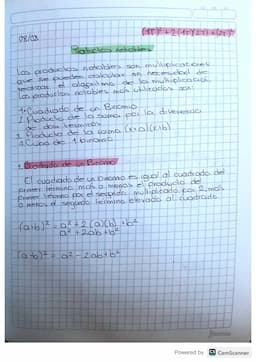 08/03
(4r)² + 2(4r)(2t) + (2t)²
Productos notables
Los productos notables son multiplicaciones
que se pueden calcular sin necesidad de
realizar el algoritmo de la multiplicación
Los productos notables más utilizados son:
1. Cuadrado de un Binomio
2. Producto de la suma por la diferencia
de dos términos
3. Producto de la forma (x+a)(x+b)
4. Cubo de 1 binomio
1. Cuadrado de un Binomio
El cuadrado de un binomio es igual al cuadrado del
primer término más o menos el producto del
primer término por el segundo multiplicado por 2, más
el segundo término elevado al cuadrado
(a+b)² = a² + 2(a)(b) + b²
a² + 2ab + b²
(a-b)² = a² - 2ab + b²
Powered by CS CamScanner